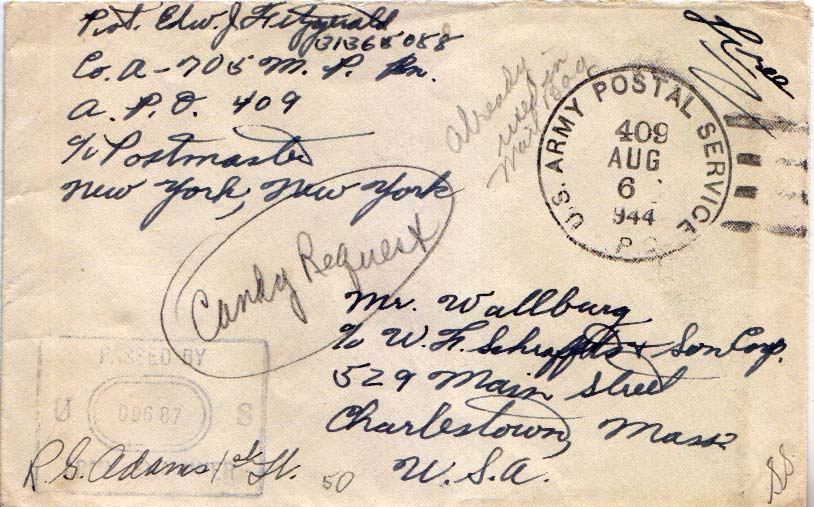 Pvt. Edw. J. Fitzgerald
31365088
Co. A - 705 M. P. Bn.
A. P. O. 409
c/o Postmaster
New York, New York
Already
used in
Mail Bag
Free
U.S. ARMY POSTAL SERVICE
409
AUG
6
944
P
Candy Request
Mr. Wallburg
c/o W. F. Schrafft & Son Corp.
529 Main Street
Charlestown, Mass.
U.S.A.
PASSED BY
U 09687 S
R. G. Adams 1st Lt.
50